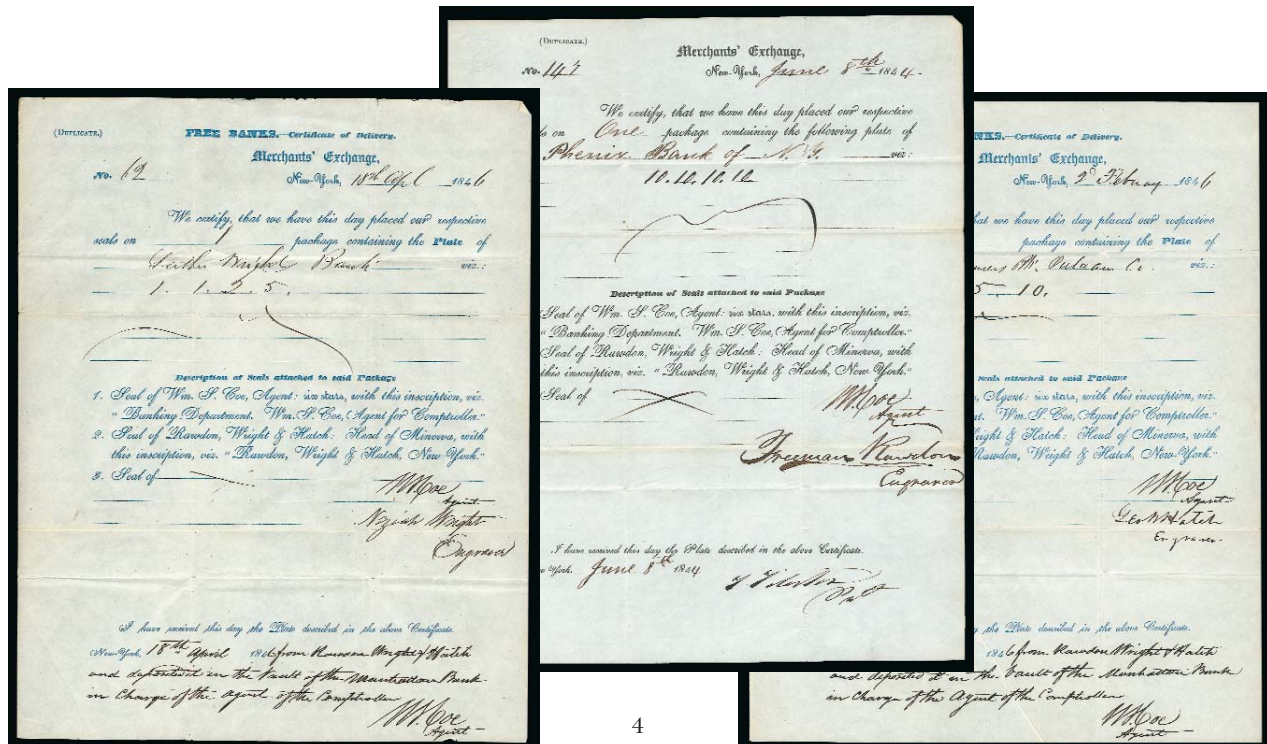 (DUPLICATE.)
FREE BANKS.—Certificate of Delivery.
Merchants' Exchange,
No. 62
New-York, 18th Apl 1846
We certify, that we have this day placed our respective
seals on 1 package containing the Plate of
Bank viz.:
1. 1. 2. 5.
Description of Seals attached to said Package
1. Seal of Wm. S. Coe, Agent: six stars, with this inscription, viz.
"Banking Department. Wm. S. Coe, Agent for Comptroller."
2. Seal of Rawdon, Wright & Hatch: Head of Minerva, with
this inscription, viz. "Rawdon, Wright & Hatch, New-York."
3. Seal of
WS. Coe
Agent
Neziah Wright
Engraver
I have received this day the Plate described in the above Certificate.
New-York, 18th April 1846 from Rawdon Wright & Hatch
and deposited in the Vault of the Manhattan Bank
in Charge of the agent of the Comptroller
WS. Coe
Agent
(DUPLICATE.)
Merchants' Exchange,
No. 147
New-York, June 8th 1844.
We certify, that we have this day placed our respective
ls on One package containing the following plate of
Phenix Bank of N. Y. viz:
10.10.10.10
Description of Seals attached to said Package
Seal of Wm. S. Coe, Agent: six stars, with this inscription, viz.
"Banking Department. Wm. S. Coe, Agent for Comptroller."
Seal of Rawdon, Wright & Hatch: Head of Minerva, with
this inscription, viz. "Rawdon, Wright & Hatch, New York."
Seal of
WS. Coe
Agent
Freeman Rawdon
Engraver
I have received this day the Plate described in the above Certificate.
w York. June 8th 1844
NKS.—Certificate of Delivery.
Merchants' Exchange,
New-York, 2d February 1846
hat we have this day placed our respective
package containing the Plate of
Bk. Putnam Co. viz.:
5. 10.
Seals attached to said Package
Agent: six stars, with this inscription, viz.
t. Wm. S. Coe, Agent for Comptroller."
right & Hatch: Head of Minerva, with
Rawdon, Wright & Hatch, New-York."
WS. Coe
Agent
Geo W Hatch
Engraver
y the Plate described in the above Certificate.
1846 from Rawdon Wright & Hatch
and deposited it in the Vault of the Manhattan Bank
in Charge of the Agent of the Comptroller
WS. Coe
Agent
4